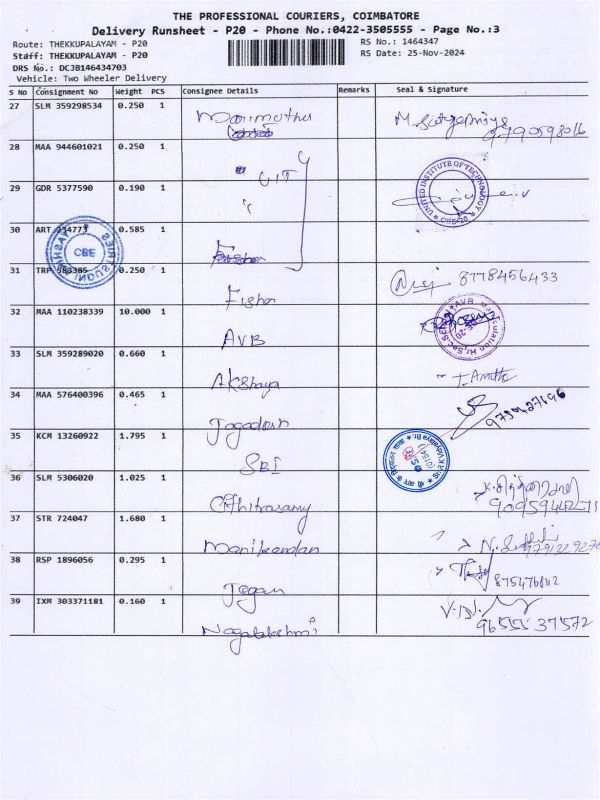 THE PROFESSIONAL COURIERS, COIMBATORE
Delivery Runsheet - P20 - Phone No.:0422-3505555 - Page No.:3
Route: THEKKUPALAYAM - P20
RS No.: 1464347
Staff: THEKKUPALAYAM - P20
RS Date: 25-Nov-2024
DRS No.: DCJB146434703
Vehicle: Two Wheeler Delivery
S No Consignment No Weight PCS Consignee Details Remarks Seal & Signature
27 SLM 359298534 0.250 1 Marimuthu
9790598016
28 MAA 944601021 0.250 1 " CIT
29 GDR 5377590 0.190 1 "
UNITED INSTITUTE OF TECHNOLOGY
30 ART 234773 0.585 1
CBE
31 TRP 583385 0.250 1 Fisher
8778456433
32 MAA 110238339 10.000 1 AVB
33 SLM 359289020 0.660 1 Akshaya
34 MAA 576400396 0.465 1 Jagadesh
9739427696
35 KCM 13260922 1.795 1 SBI
36 SLM 5306020 1.025 1 Chithrasamy
37 STR 724047 1.680 1 Manikandan
38 RSP 1896056 0.295 1 Jegan
39 IXM 303371181 0.160 1 Nagalakshmi
V.N.
9655537572